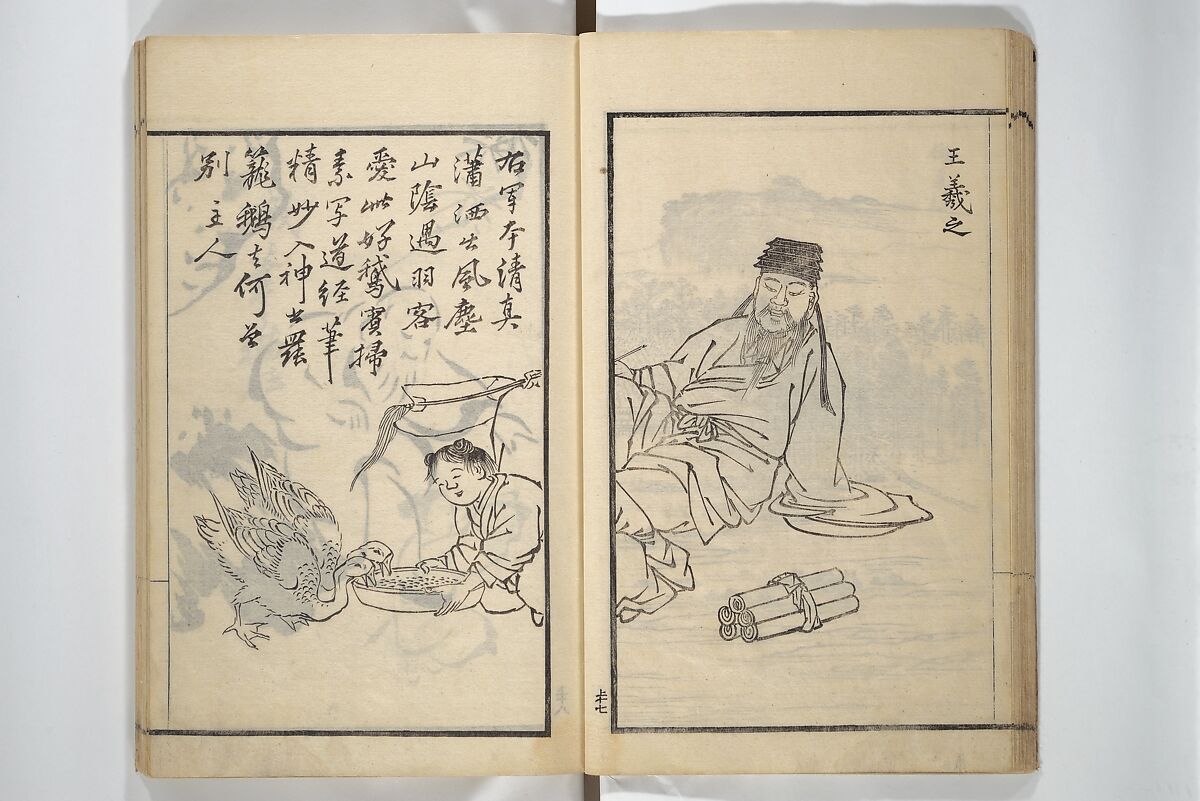 王羲之
右軍本清真
瀟洒出風塵
山陰遇羽客
愛此好鵞賓掃
素写道経筆
精妙入神書罷
籠鵝去何曽
別主人